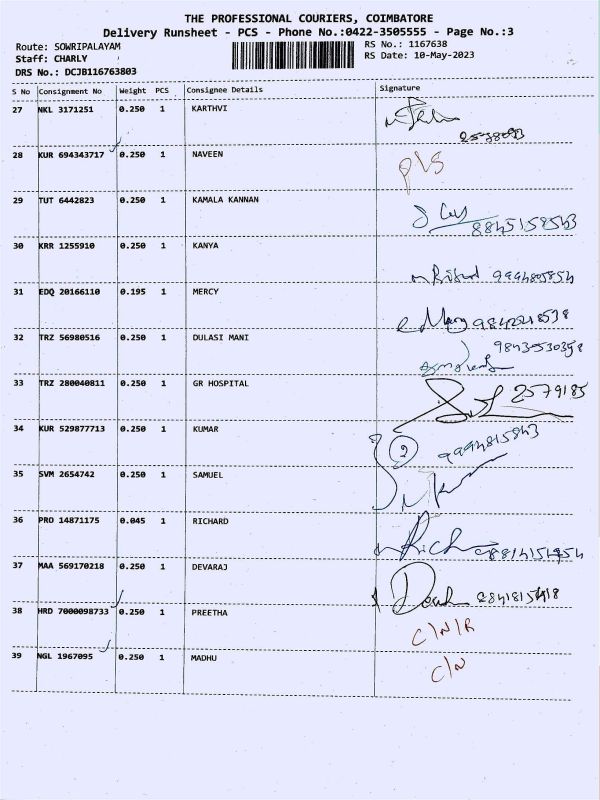 THE PROFESSIONAL COURIERS, COIMBATORE
Delivery Runsheet - PCS - Phone No.:0422-3505555 - Page No.:3
Route: SOWRIPALAYAM
RS No.: 1167638
Staff: CHARLY
RS Date: 10-May-2023
DRS No.: DCJB116763803
S No Consignment No Weight PCS Consignee Details Signature
27 NKL 3171251 0.250 1 KARTHVI
28 KUR 694343717 0.250 1 NAVEEN
29 TUT 6442823 0.250 1 KAMALA KANNAN
30 KRR 1255910 0.250 1 KANYA
31 EDQ 20166110 0.195 1 MERCY
32 TRZ 56980516 0.250 1 DULASI MANI
33 TRZ 280040811 0.250 1 GR HOSPITAL 2579185
34 KUR 529877713 0.250 1 KUMAR
35 SVM 2654742 0.250 1 SAMUEL
36 PRO 14871175 0.045 1 RICHARD
37 MAA 569170218 0.250 1 DEVARAJ
38 HRD 7000098733 0.250 1 PREETHA C/N/R
39 NGL 1967095 0.250 1 MADHU C/N